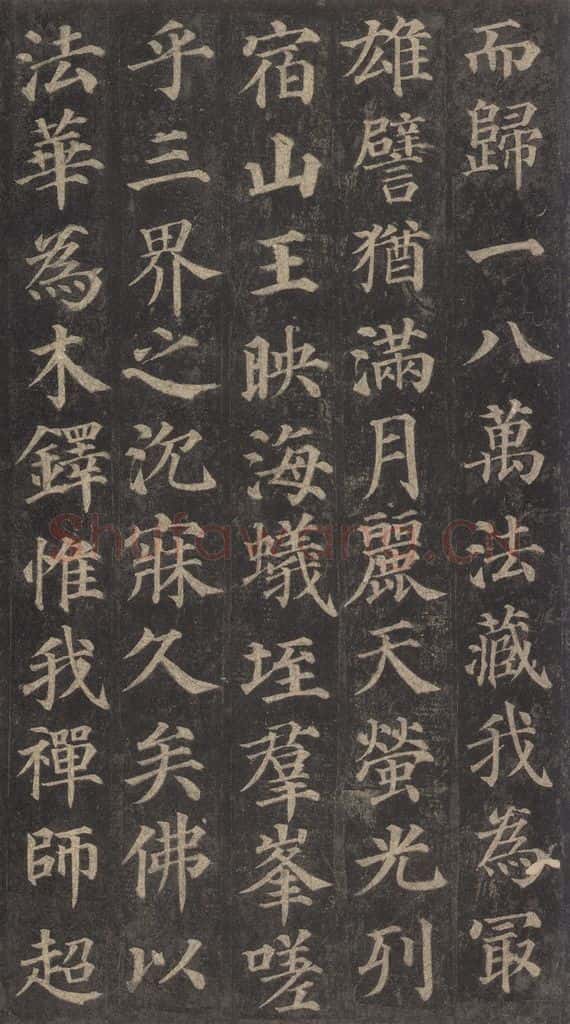 而歸一八萬法藏我為冣
雄譬猶滿月麗天螢光列
宿山王映海蟻垤羣峯嗟
乎三界之沉寐久矣佛以
法華為木鐸惟我禪師超
Shufawang.cn